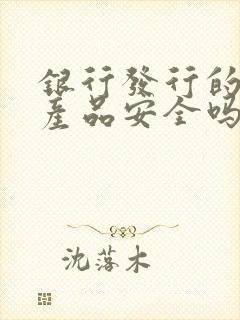 銀行發行的
產品安全嗎
沈落木